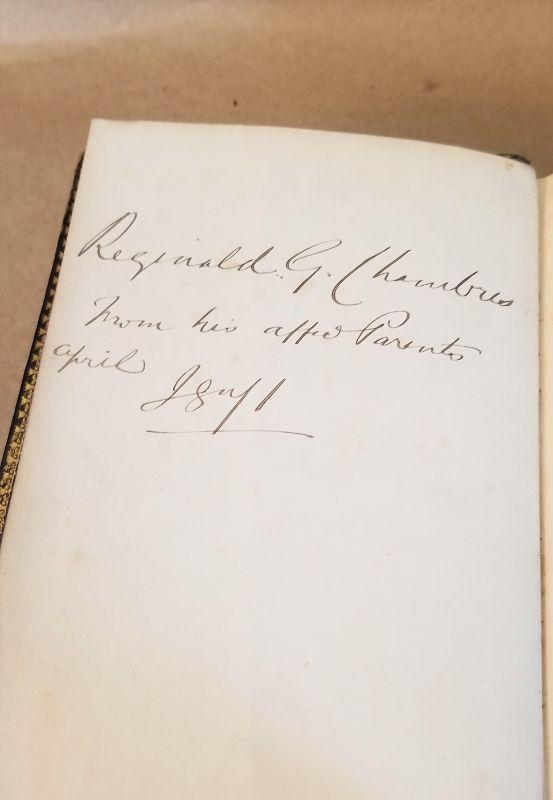 Reginald. G. Chambres
From his affec Parents
April
1871